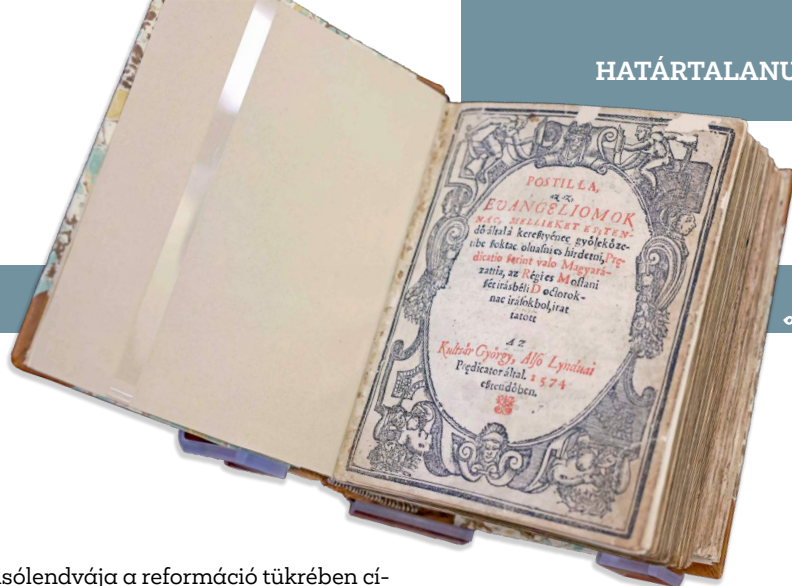 HATÁRTALANU
POSTILLA,
az az,
EVANGELIOMOK
NAC, MELLIEKET ESZTEN-
dő által a keresztyénec gyölekőze-
tibe szoktac oluasni es hirdetni, Pre-
dicatio szerint valo Magyará-
zattia, az Régi es Mostani
szét irásbéli Doctorok-
nac irásokbol, irat
tatott
AZ
Kultsár György, Also Lynduai
Predicator által. 1574
esztendőben.
sólendvája a reformáció tükrében cí-